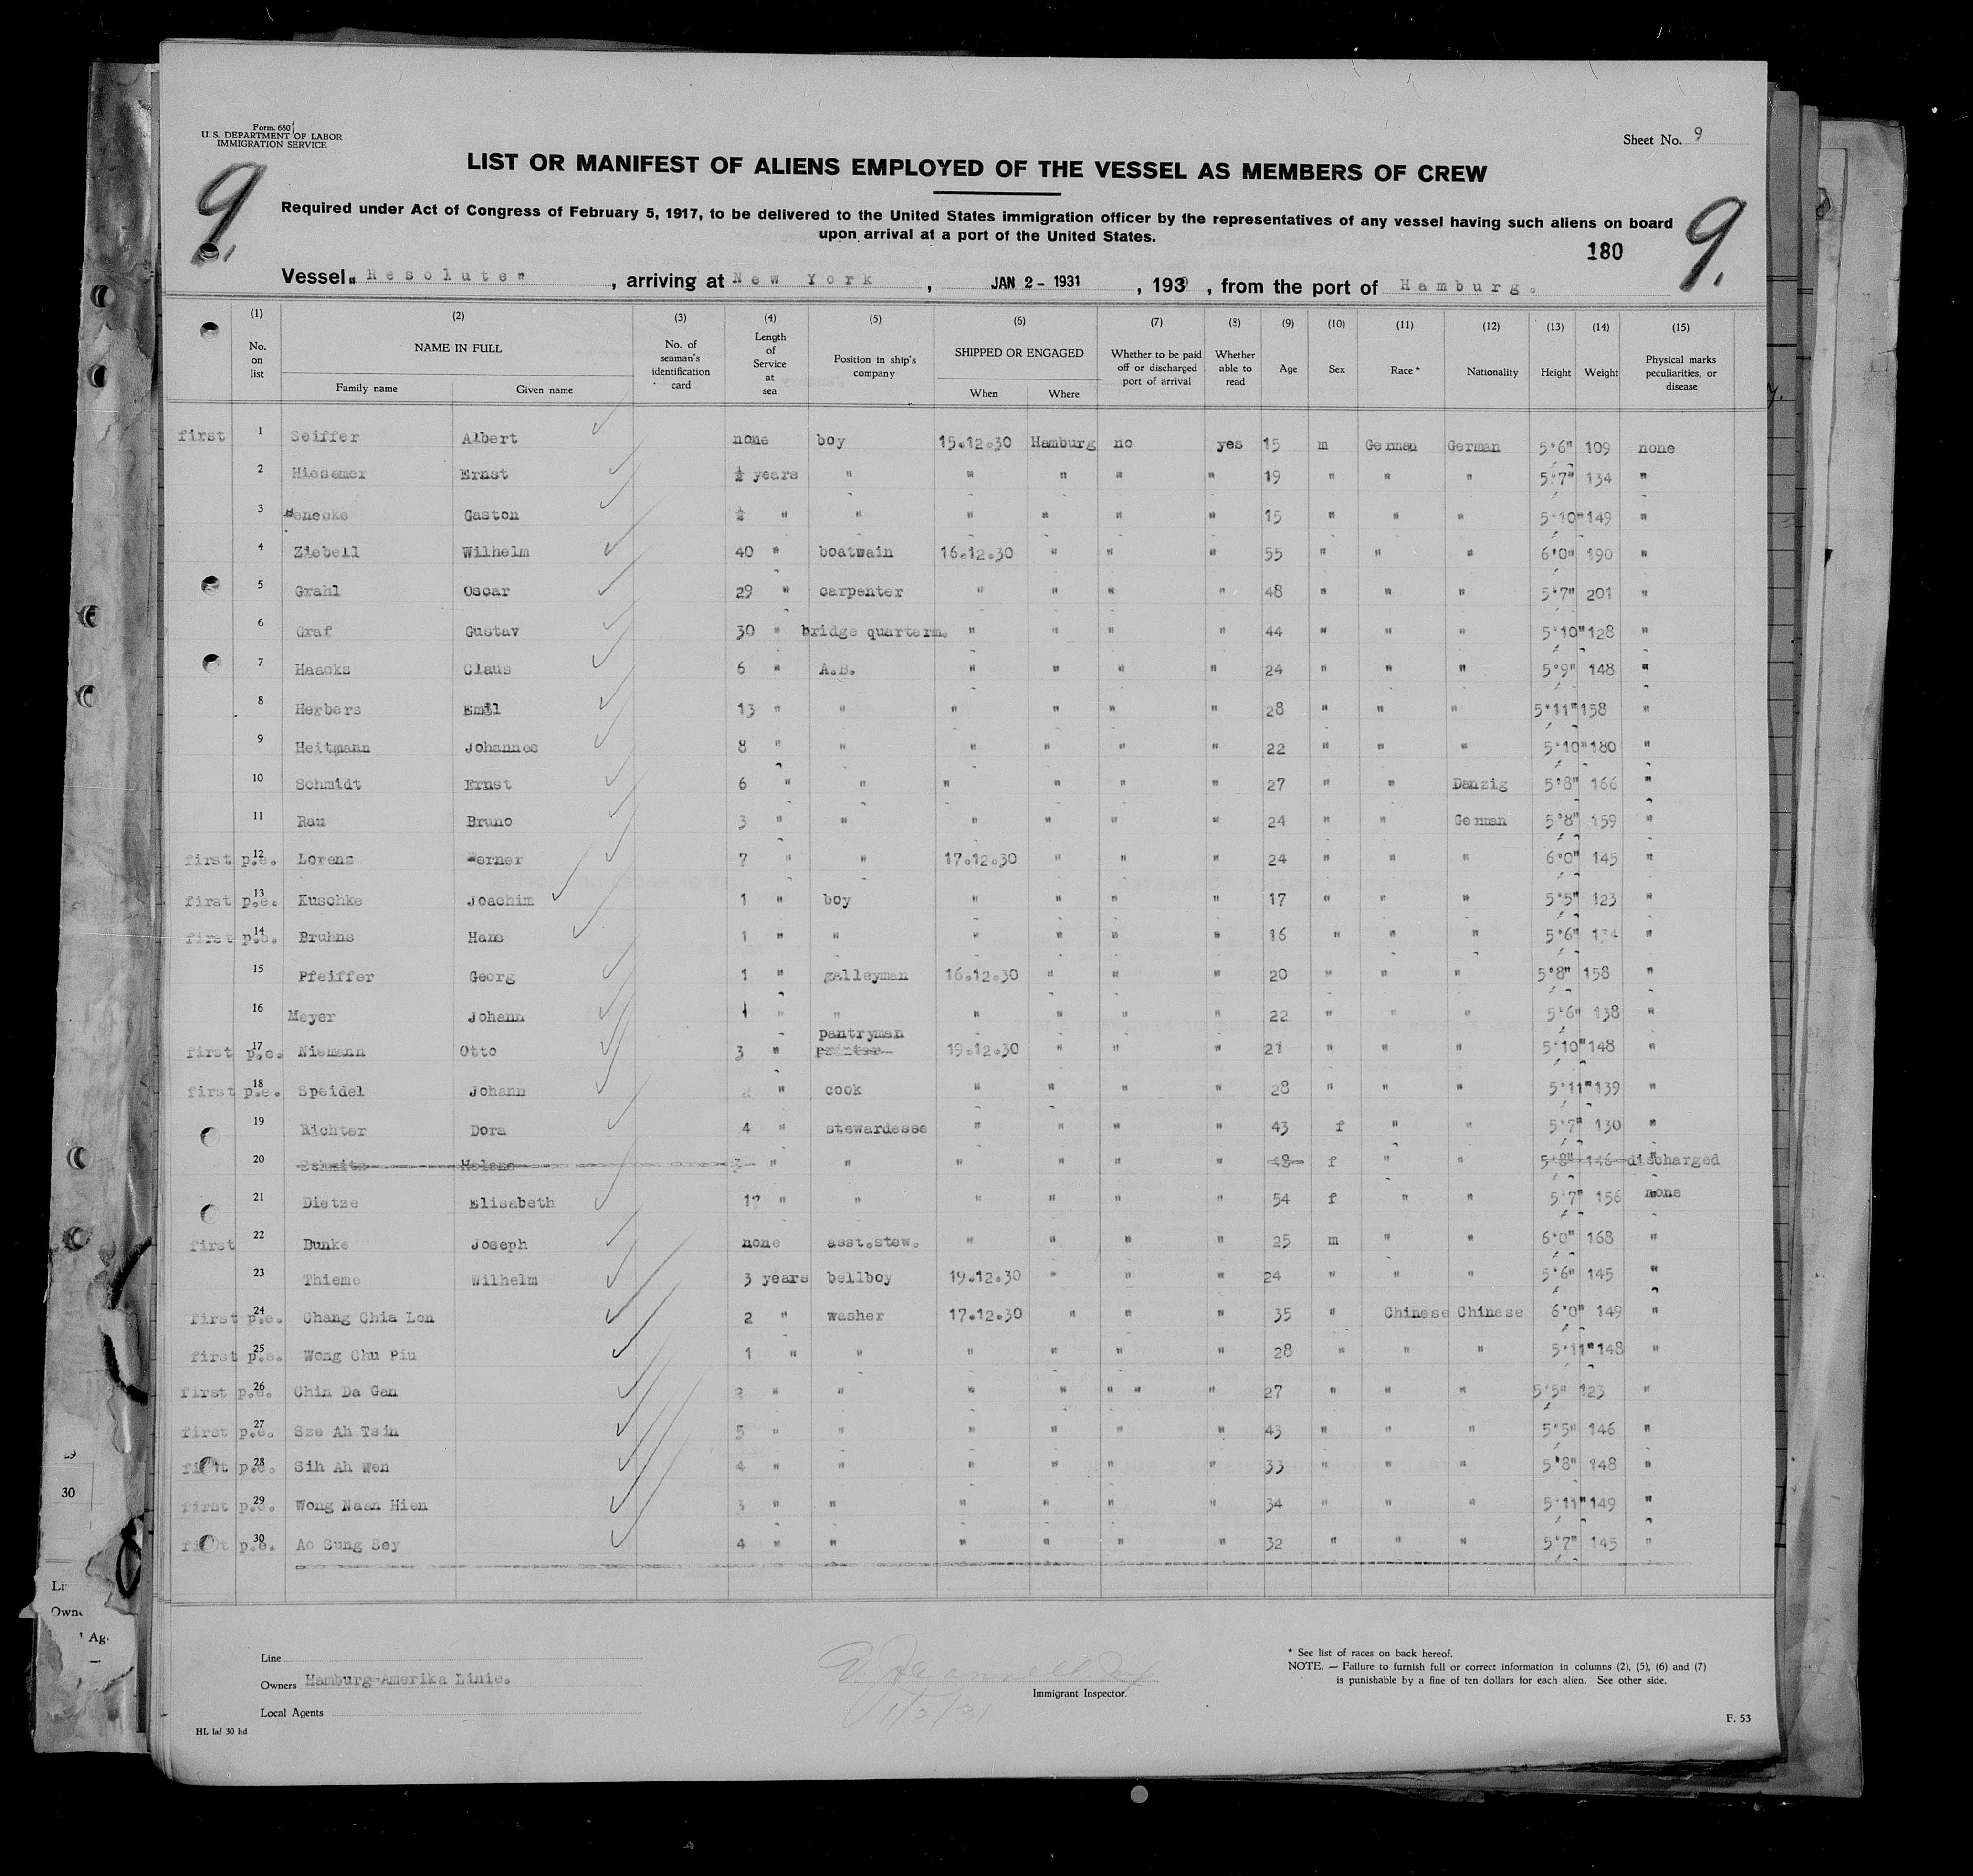 Form. 680
U. S. DEPARTMENT OF LABOR
IMMIGRATION SERVICE
Sheet No. 9
LIST OR MANIFEST OF ALIENS EMPLOYED OF THE VESSEL AS MEMBERS OF CREW
9. 9.
Required under Act of Congress of February 5, 1917, to be delivered to the United States immigration officer by the representatives of any vessel having such aliens on board
upon arrival at a port of the United States.
180
Vessel „ Resolute" , arriving at New York , JAN 2 - 1931 , 193 , from the port of Hamburg.
(1) (2) (3) (4) (5) (6) (7) (8) (9) (10) (11) (12) (13) (14) (15)
No. on list NAME IN FULL Family name Given name No. of seaman's identification card Length of Service at sea Position in ship's company SHIPPED OR ENGAGED When Where Whether to be paid off or discharged port of arrival Whether able to read Age Sex Race * Nationality Height Weight Physical marks peculiarities, or disease
first 1 Seiffer Albert none boy 15.12.30 Hamburg no yes 15 m German German 5'6" 109 none
2 Hiesemer Ernst ½ years " " " " " 19 " " " 5'7" 134 "
3 Henecke Gaston ½ " " " " " " 15 " " " 5'10" 149 "
4 Ziebell Wilhelm 40 " boatwain 16.12.30 " " " 55 " " " 6'0" 190 "
5 Grahl Oscar 29 " carpenter " " " " 48 " " " 5'7" 201 "
6 Graf Gustav 30 " bridge quarterm. " " " " 44 " " " 5'10" 128 "
7 Haacks Claus 6 " A.B. " " " " 24 " " " 5'9" 148 "
8 Herbers Emil 13 " " " " " " 28 " " " 5'11" 158 "
9 Heitmann Johannes 8 " " " " " " 22 " " " 5'10" 180 "
10 Schmidt Ernst 6 " " " " " " 27 " " Danzig 5'8" 166 "
11 Rau Bruno 3 " " " " " " 24 " " German 5'8" 159 "
first p.e. 12 Lorenz Werner 7 " " 17.12.30 " " " 24 " " " 6'0" 145 "
first p.e. 13 Kuschke Joachim 1 " boy " " " " 17 " " " 5'5" 123 "
first p.e. 14 Bruhns Hans 1 " " " " " " 16 " " " 5'6" "
15 Pfeiffer Georg 1 " galleyman 16.12.30 " " " 20 " " " 5'8" 158 "
16 Meyer Johann 1 " " " " " " 22 " " " 5'6" 138 "
pantryman
first p.e. 17 Niemann Otto 3 " printer 19.12.30 " " " 21 " " " 5'10" 148 "
first p.e. 18 Speidel Johann " cook " " " " 28 " " " 5'11" 139 "
19 Richter Dora 4 " stewardesse " " " " 43 f " " 5'7" 130 "
20 Schmitz Helene 3 " " " " " " 48 f " " 5'8" 146 discharged
21 Dietze Elisabeth " " " " " " 54 f " " 5'7" 156 none
first 22 Bunke Joseph none asst.stew. " " " " 25 m " " 6'0" 168 "
23 Thieme Wilhelm 3 years bellboy 19.12.30 " " " 24 " " " 5'6" 145 "
first p.e. 24 Chang Chia Lon 2 " washer 17.12.30 " " " 35 " Chinese Chinese 6'0" 149 "
first p.e. 25 Wong Chu Piu 1 " " " " " " 28 " " " 5'11" 148 "
first p.e. 26 Chin Da Gan 2 " " " " " " " 27 " " " 5'5" 123 "
first p.e. 27 Sze Ah Tsin 5 " " " " " " 43 " " " 5'5" 146 "
first p.e. 28 Sih Ah Wen 4 " " " " " " 33 " " " 5'8" 148 "
first p.e. 29 Wong Naan Hien 3 " " " " " " 34 " " " 5'11" 149 "
first p.e. 30 Ao Sung Sey 4 " " " " " " 32 " " " 5'7" 145 "
Line
Owners Hamburg-Amerika Linie.
Local Agents
Immigrant Inspector.
1/2/31
* See list of races on back hereof.
NOTE. — Failure to furnish full or correct information in columns (2), (5), (6) and (7)
is punishable by a fine of ten dollars for each alien. See other side.
HL laf 30 hd
F. 53
29
30
Ag.